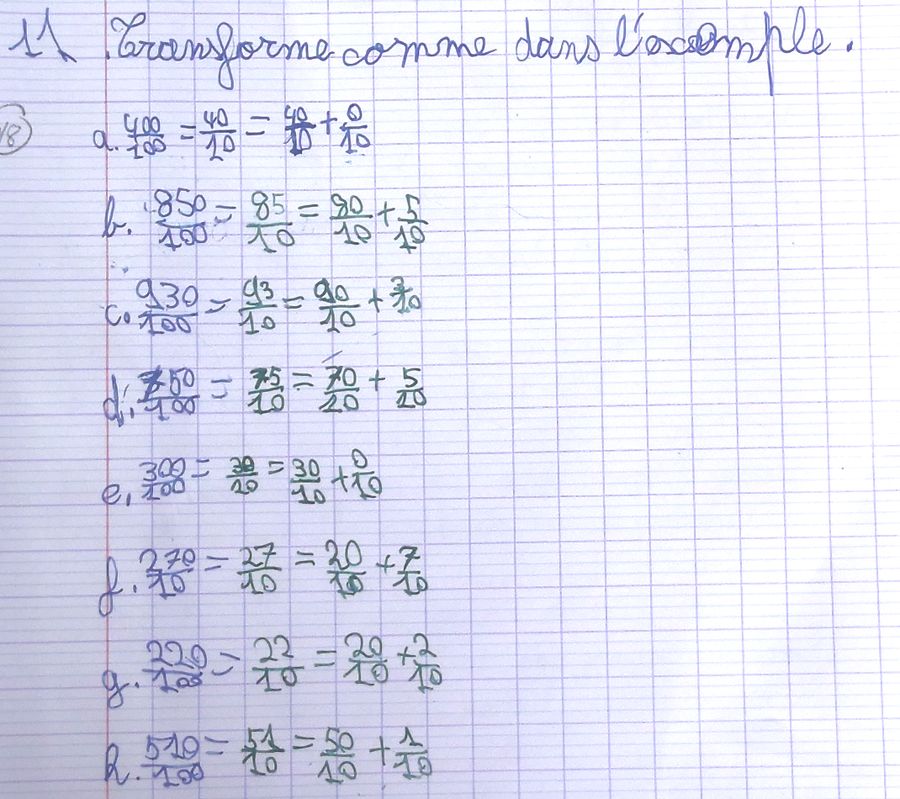 11. Transforme comme dans l'exemple.
18
a. 400/100 = 40/10 = 40/10 + 0/10
b. 850/100 = 85/10 = 80/10 + 5/10
c. 930/100 = 93/10 = 90/10 + 3/10
d. 750/100 = 75/10 = 70/10 + 5/10
e. 300/100 = 30/10 = 30/10 + 0/10
f. 270/10 = 27/10 = 20/10 + 7/10
g. 220/100 = 22/10 = 20/10 + 2/10
h. 510/100 = 51/10 = 50/10 + 1/10